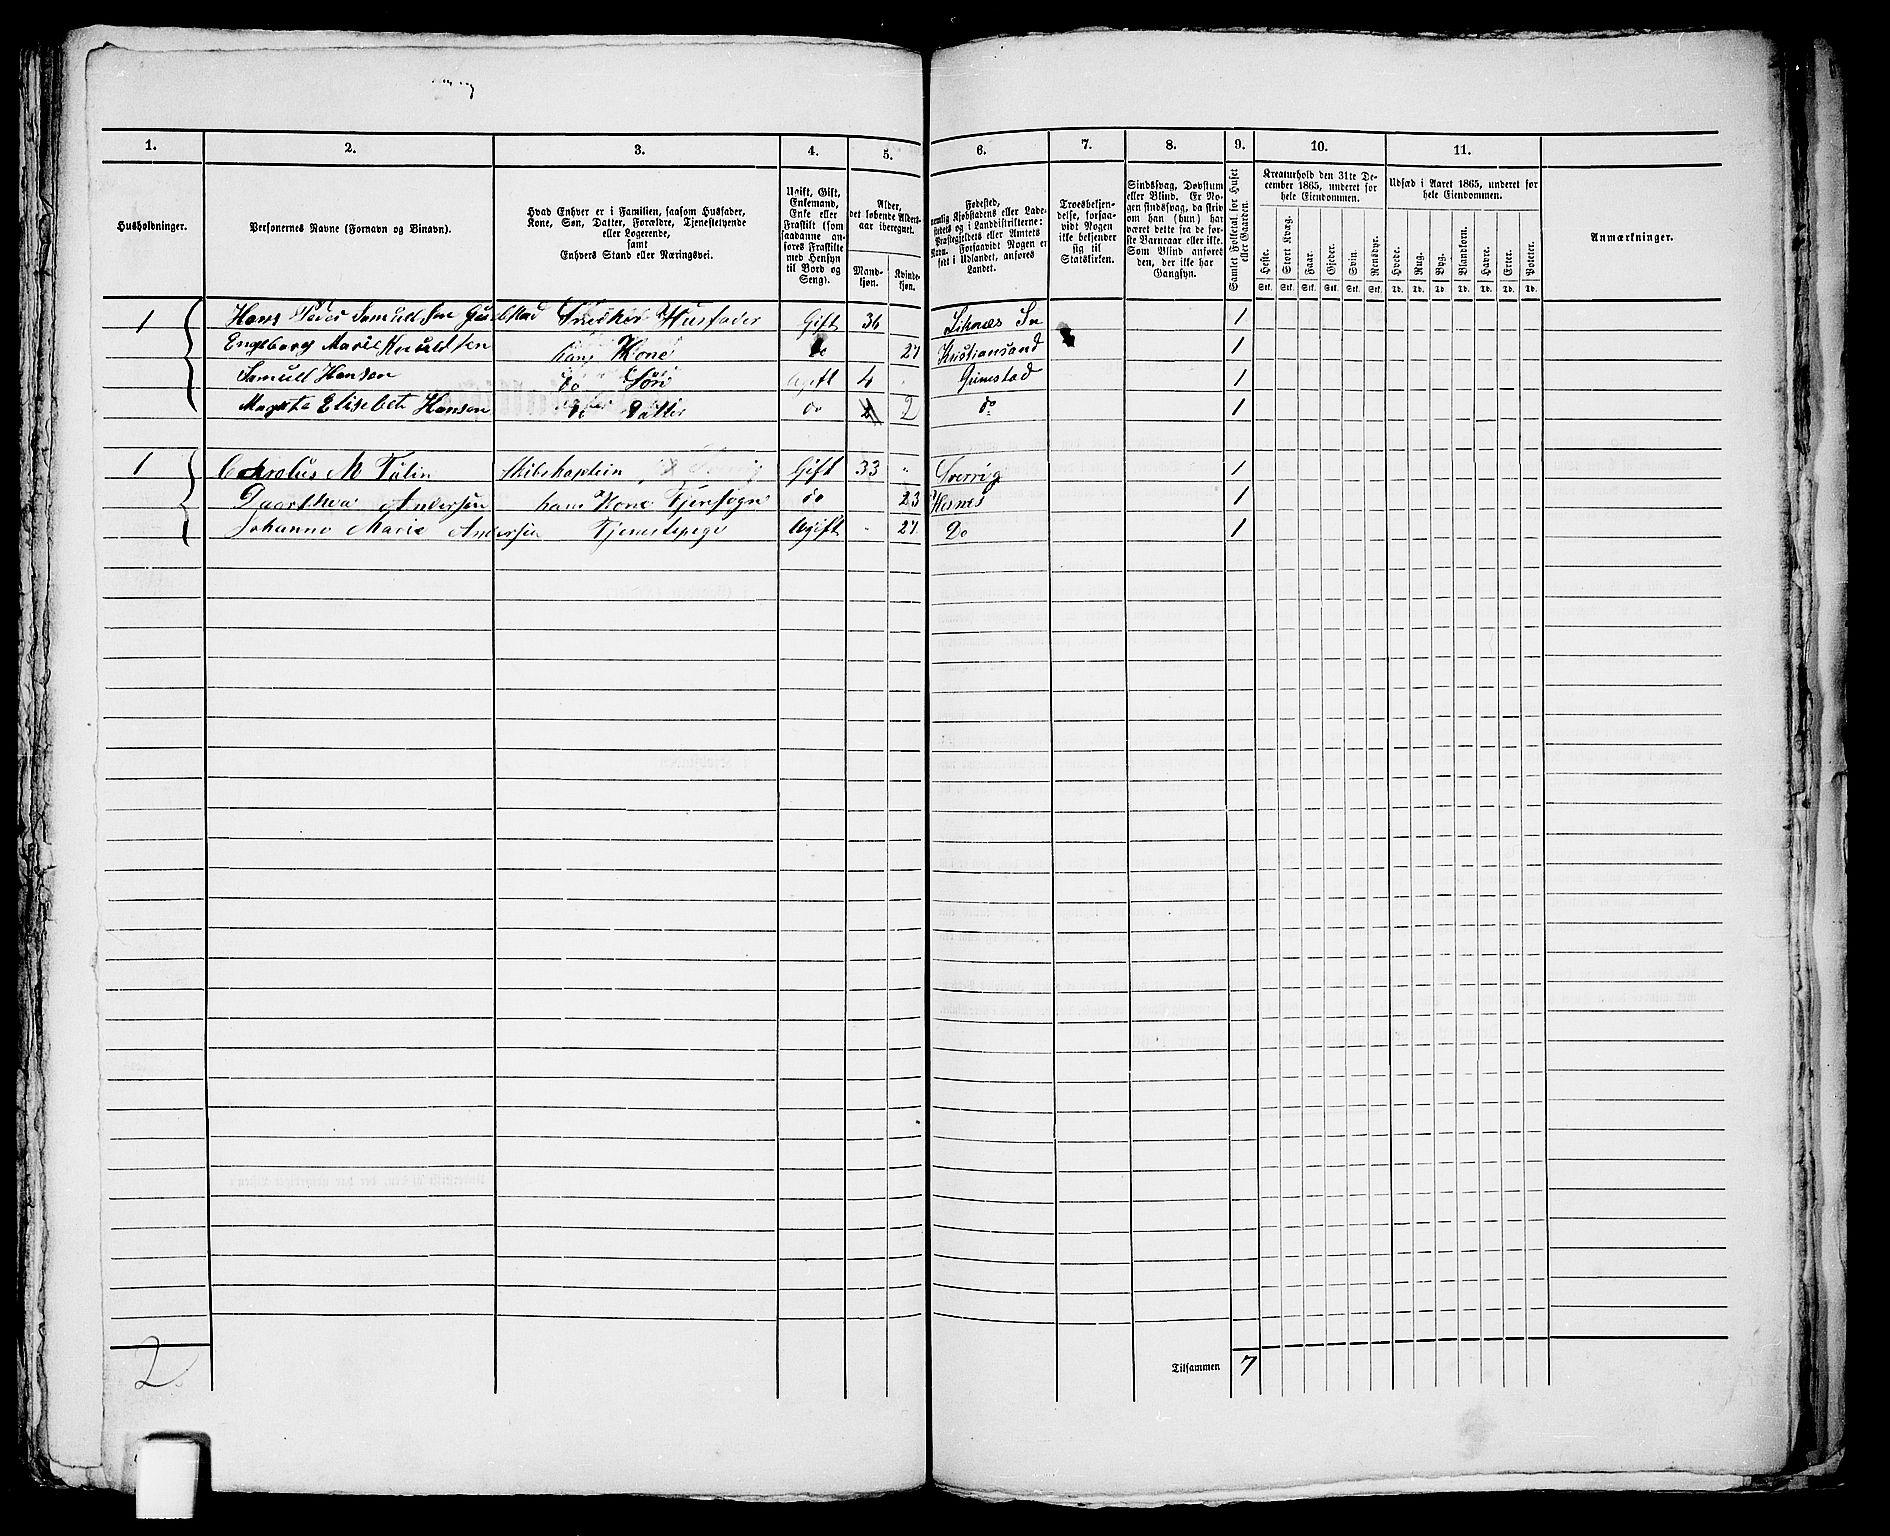 1. 2. 3. 4. 5. 6. 7. 8. 9. 10. 11.
Husholdninger.
Personernes Navne (Fornavn og Binavn).
Hvad Enhver er i Familien, saasom Husfader,
Kone, Søn, Datter, Forældre, Tjenestetyende
eller Logerende,
samt
Enhvers Stand eller Næringsvei.
Ugift, Gift,
Enkemand,
Enke eller
Fraskilt (som
saadanne an-
føres Fraskilte
med Hensyn
til Bord og
Seng).
Alder,
det løbende Alders-
aar iberegnet.
Mand-
kjøn.
Kvinde-
kjøn.
Fødested,
nemlig Kjøbstadens eller Lade-
stedets og i Landdistrikterne:
Præstegjeldets eller Amtets
Navn. Forsaavidt Nogen er
født i Udlandet, anføres
Landet.
Troesbekjen-
delse, forsaa-
vidt Nogen
ikke bekjender
sig til
Statskirken.
Sindssvag, Døvstum
eller Blind. Er No-
gen sindssvag, da skriv
om han (hun) har
været dette fra de før-
ste Barneaar eller ikke.
Som Blind anføres
den, der ikke har
Gangsyn.
Samlet Folketal for Huset
eller Gaarden.
Kreaturhold den 31te De-
cember 1865, underet for
hele Eiendommen.
Heste. Stort Kvæg. Faar. Gjeder. Svin. Rensdyr.
Stk. Stk. Stk. Stk. Stk. Stk.
Udsæd i Aaret 1865, underet for
hele Eiendommen.
Hvede. Rug. Byg. Blandkorn. Havre. Erter. Poteter.
Td. Td. Td. Td. Td. Td. Td.
Anmærkninger.
1 Hans Peder Samuelsen Husfader Gift 36 1
Engeborg Marie hans Kone Do 27 Kristiansand 1
Samuel Hansen Do Søn Ugift 4 Grimstad 1
Elisebet Hansen Do Datter do 2 do 1
1 M Tulin Skibskaptein Gift 33 " Sverrig 1
Andersen hans Kone do 23 1
Johanne Marie Andersen Ugift - 27 Do 1
2
Tilsammen 7